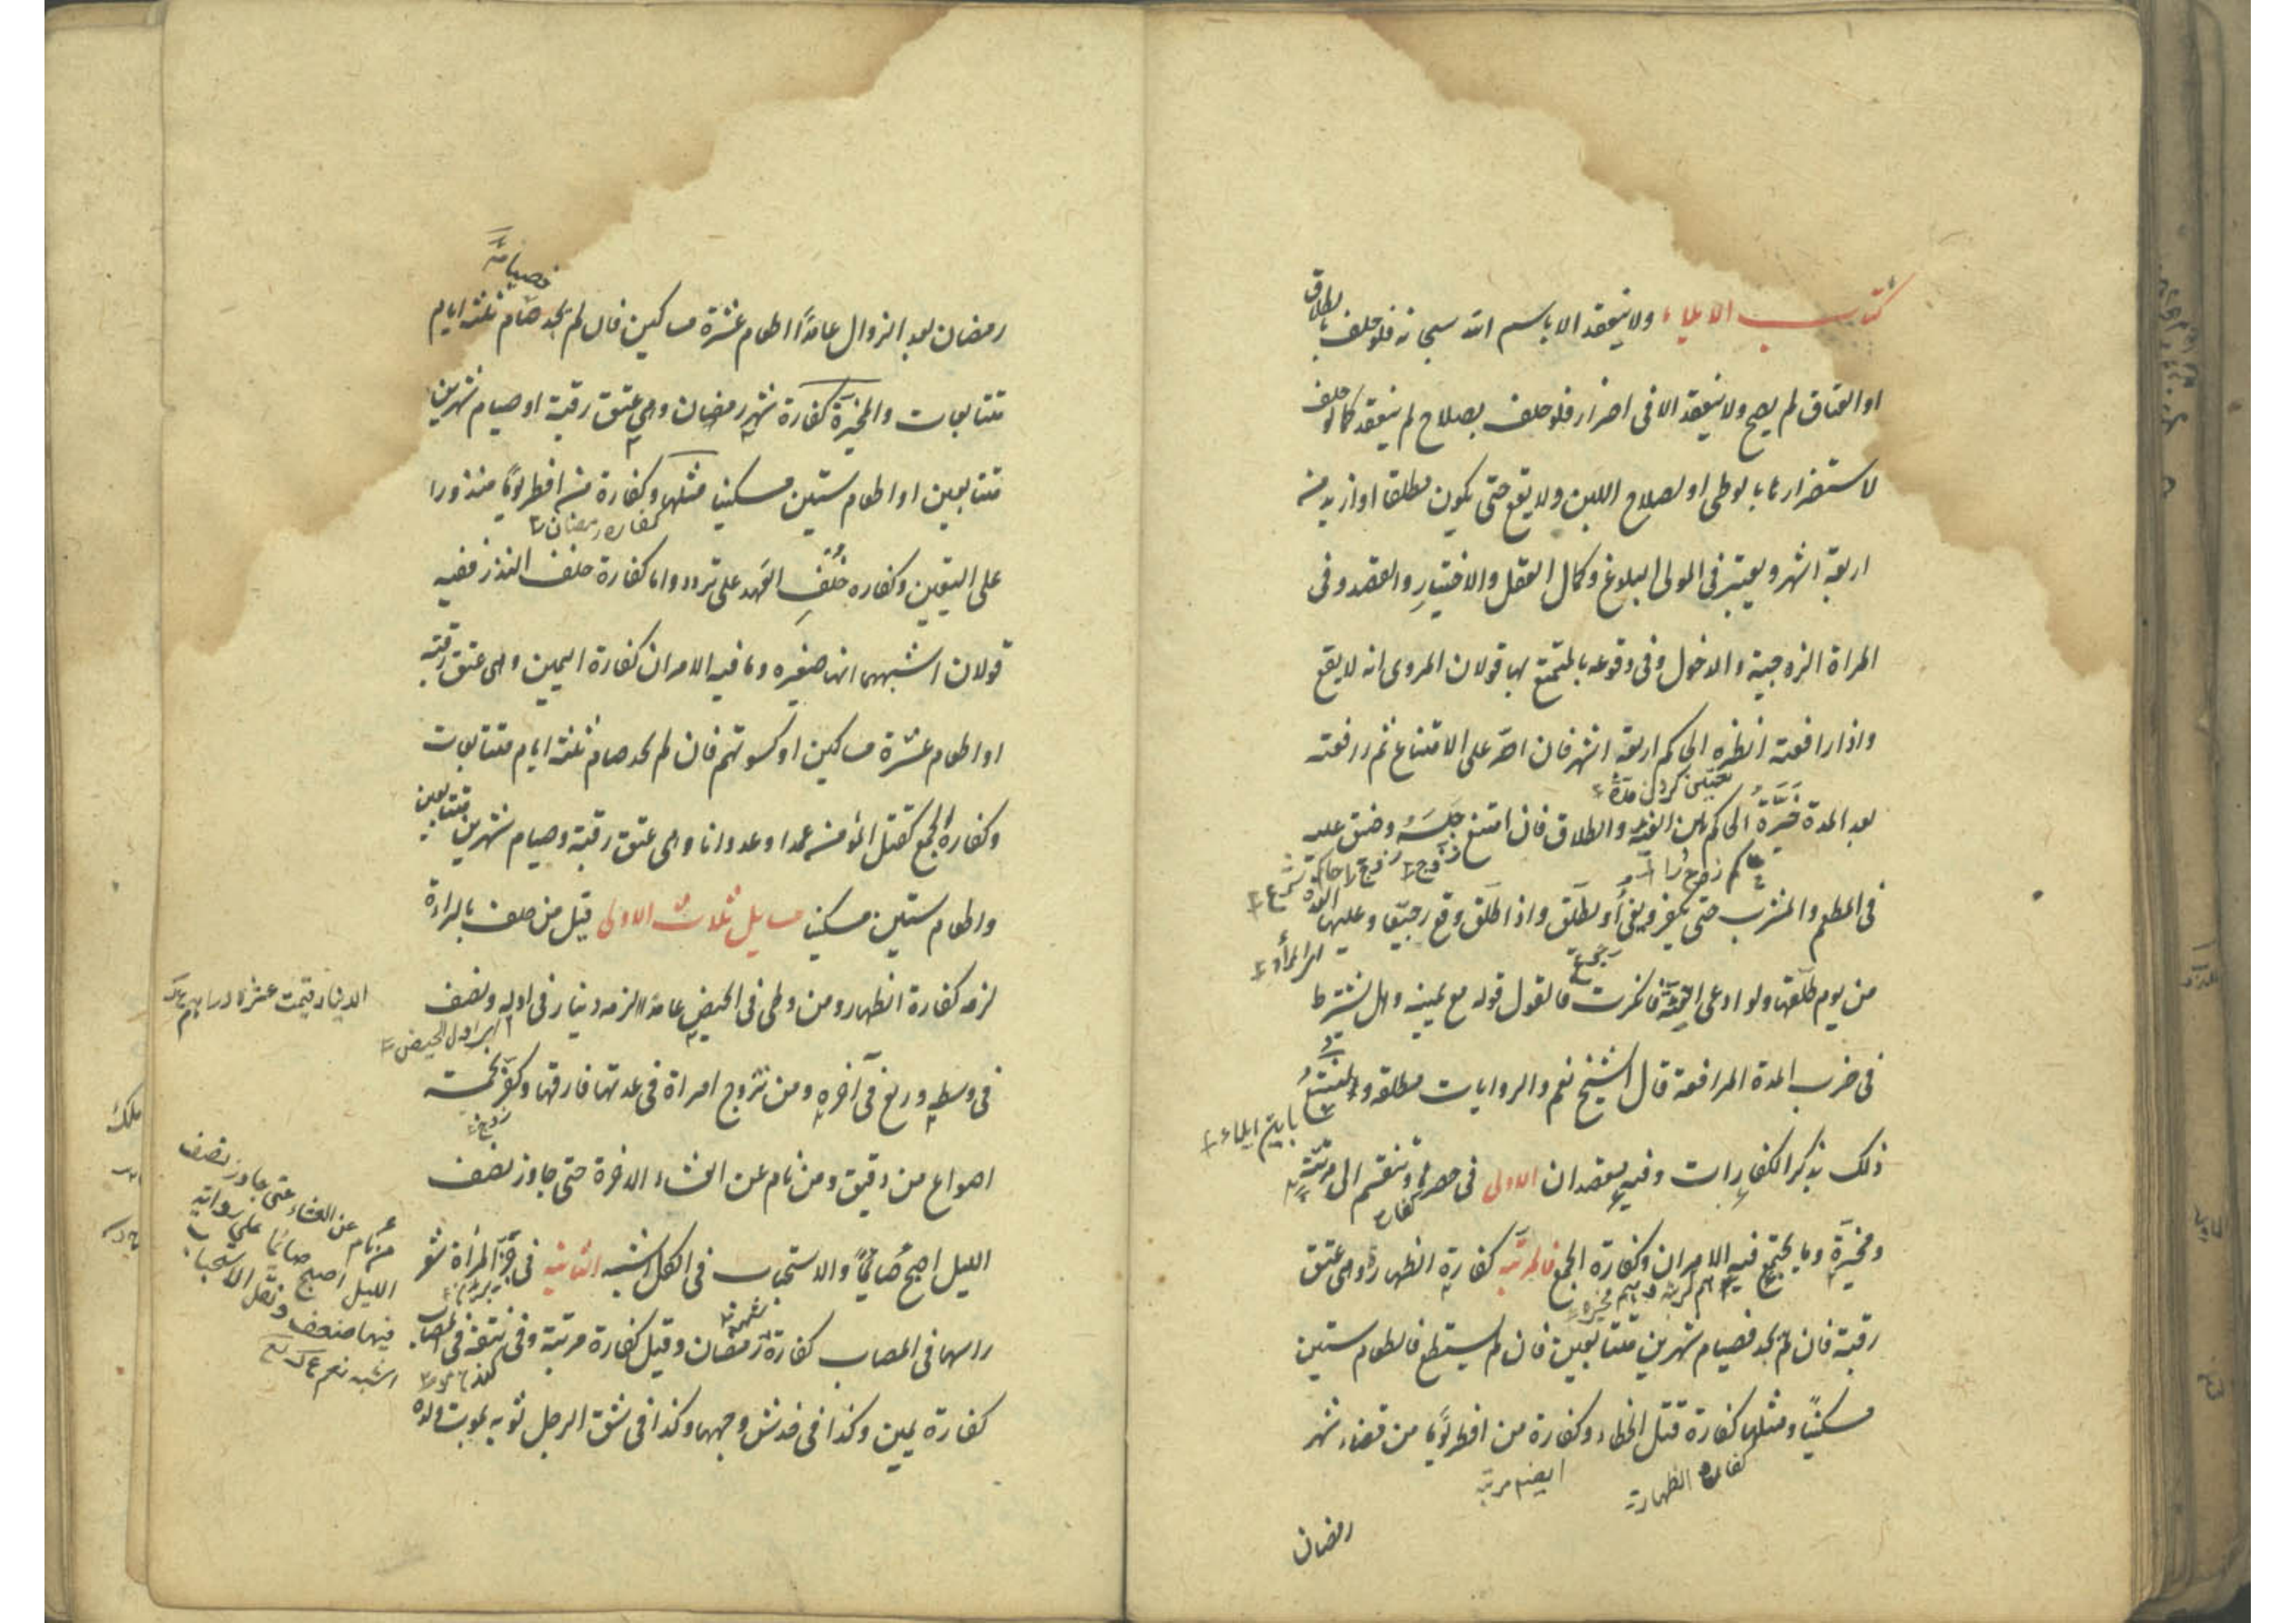 كتاب الايلاء ولا ينعقد الا باسم الله سبحانه فلو حلف بالطلاق
او العتاق لم يصح ولا ينعقد الا فى اضرار فلو حلف بصلاح لم ينعقد كما لو حلف
لاستضرارها بالوطى او لصلاح اللبن ولا يقع حتى يكون مطلقا او ازيد من
اربعة اشهر ويعتبر فى المولى البلوغ وكمال العقل والاختيار والقصد وفى
المراة الزوجية والدخول وفى وقوعه بالمتمتع بها قولان المروى انه لا يقع
واذا رافعته انظره الحاكم اربعة اشهر فان اصر على الامتناع ثم رافعته
تعيين كردن مدة
بعد المدة خَيَّرَهُ الحاكم بين الفئة والطلاق فان امتنع حبسه وضيق عليه
فى المطعم والمشرب حتى يكفر ويفئ او يطلق واذا طلق وقع رجعيا وعليها العدة
من يوم طلقها ولو ادعى الفئة فانكرت فالقول قوله مع يمينه وهل يشترط
فى ضرب المدة المرافعة قال الشيخ نعم والروايات مطلقة ولنتبع
ذلك بذكر الكفارات وفيه مقصدان الاولى فى حصرها وتنقسم الى مرتبة
ومخيرة وما يجتمع فيه الامران وكفارة الجمع فالمرتبة كفارة الظهار وهى عتق
رقبة فان لم يجد فصيام شهرين متتابعين فان لم يستطع فاطعام ستين
مسكينًا ومثلها كفارة قتل الخطاء وكفارة من افطر يومًا من قضاء شهر
كفارة الظهار
ايضم مرتبة
رمضان
فصيامه
رمضان بعد الزوال عامدًا اطعام عشرة مساكين فان لم يجد صام ثلثة ايام
متتابعات والمخيرة كفارة شهر رمضان وهى عتق رقبة او صيام شهرين
متتابعين او اطعام ستين مسكينا مثلها وكفارة من افطر يومًا منذورا
كفاره رمضان
على التعيين وكفاره خُلْفِ العهد على تردد واما كفارة خلف النذر ففيه
قولان اشبههما انها صغيره وما فيه الامران كفارة اليمين وهى عتق رقبة
او اطعام عشرة مساكين او كسوتهم فان لم يجد صام ثلثة ايام متتابعات
وكفارة الجمع كقتل المؤمن عمدا وعدوانا وهى عتق رقبة وصيام شهرين متتابعين
واطعام ستين مسكينا مسايل ثلاث الاولى قيل من حلف بالبراءة
لزمه كفارة الظهار ومن وطى فى الحيض عامدًا لزمه دينار فى اوله ونصف
الدينار قيمت عشرة دراهم
فى وسطه وربع فى آخره ومن تزوج امراة فى عدتها فارقها وكفر بخمسة
اصواع من دقيق ومن نام عن العشاء الاخرة حتى جاوز نصف
الليل اصبح صائمًا والاستحباب فى الكل اشبه الثانية فى جزّ المراة شعر
راسها فى المصاب كفارة رمضان وقيل كفارة مرتبة وفى نتفه فى المصاب
كفارة يمين وكذا فى خدش وجهها وكذا فى شق الرجل ثوبه لموت ولده
من نام عن العشاء حتى جاوز نصف
الليل اصبح صائما على رواية
فيها ضعف ولعل الاستحباب
اشبه نعم